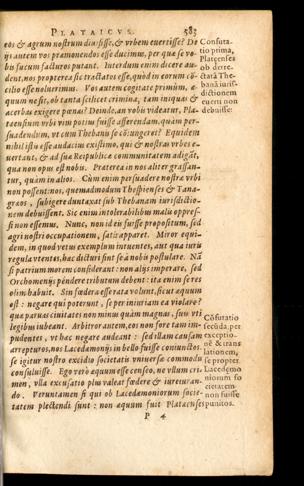 PLATAICVS. 583
eos & agrum nostrum diripuisse, & vrbem euertisse? De
ijs autem vos præmonendos esse ducimus, per quæ se vo-
bis fucum facturos putant. Interdum enim dicere au-
dent, nos propterea sic tractatos esse, quòd in eorum cõ-
cilio esse noluerimus. Vos autem cogitate primùm, æ-
quum ne sit, ob tanta scilicet crimina, tam iniquas &
acerbas exigere pœnas? Deinde, an vobis videatur, Pla-
tæensium vrbi vim potius fuisse afferendam, quàm per-
suadendum, vt cum Thebanis se cõiungeret? Equidem
nihil istis esse audacius existimo, qui & nostras vrbes e-
uertant, & ad suæ Reipublicæ communitatem adigãt,
qua non opus est nobis. Præterea in nos aliter grassan-
tur, quàm in alios. Cùm enim persuadere nostræ vrbi
non possent: nos, quemadmodum Thespienses & Tana-
græos, subigere duntaxat sub Thebanam iurisdictio-
nem debuissent. Sic enim intolerabilibus malis oppres-
si non essemus. Nunc, non id eis fuisse propositum, sed
agri nostri occupationem, satis apparet. Miror equi-
dem, in quod vetus exemplum intuentes, aut qua iuris
regula vtentes, hac dicturi sint se à nobis postulare. Nã
si patrium morem considerant: non alijs imperare, sed
Orchomenijs pendere tributum debent: ita enim se res
olim habuit. Sin fœdera esse rata volunt, sicut æquum
est: negare qui poterunt, se per iniuriam ea violare?
quæ paruas ciuitates non minus quàm magnas, suis vti
legibus iubeant. Arbitror autem, eos non fore tam im-
pudentes, vt hæc negare audeant: sed illam causam
arrepturos, nos Lacedæmonijs in bello fuisse coniunctos,
se igitur nostro excidio societatis vniuersæ commodu
consuluisse. Ego verò æquum esse censeo, ne vllum cri-
men, vlla excusatio plus valeat fœdere & iureiuran-
do. Veruntamen si qui ob Lacedæmoniorum socie-
tatem plectendi sunt: non æquum fuit Platæenses
P 4
Confuta-
tio prima,
Platęenses
ob detre-
ctatā The-
banā iuris-
dictionem
euerti non
debuisse.
Cõfutatio
secūda, per
exceptio-
nē & trans
lationem,
se propter
Lacedæmo
niorum so
cietatem
non fuisse
punitos.